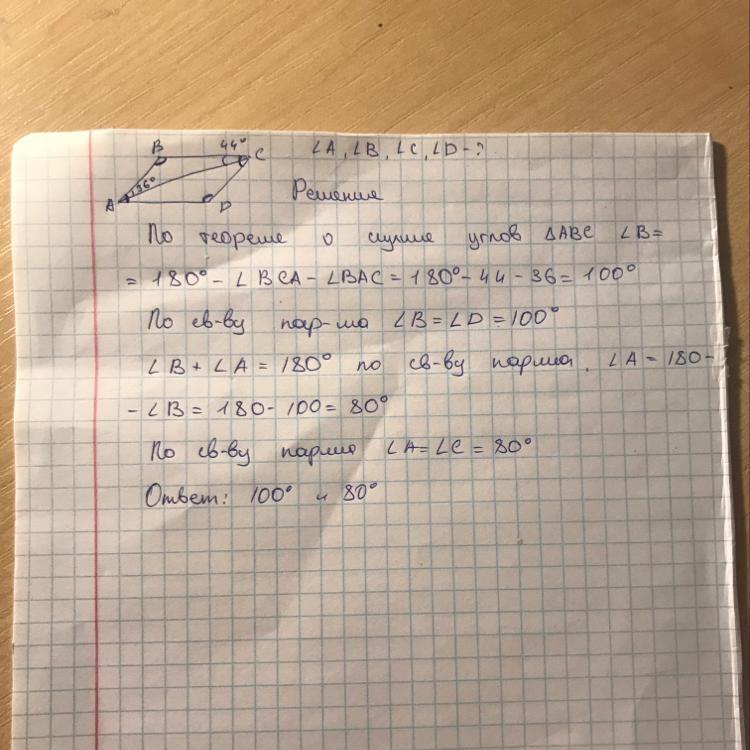 B 44° C ∠A, ∠B, ∠C, ∠D - ?
36°
A D Решение
По теореме о сумме углов ΔABC ∠B =
= 180° - ∠BCA - ∠BAC = 180° - 44 - 36 = 100°
По св-ву пар-ма ∠B = ∠D = 100°
∠B + ∠A = 180° по св-ву парма. ∠A = 180 -
- ∠B = 180 - 100 = 80°
По св-ву парма ∠A = ∠C = 80°
Ответ: 100° и 80°